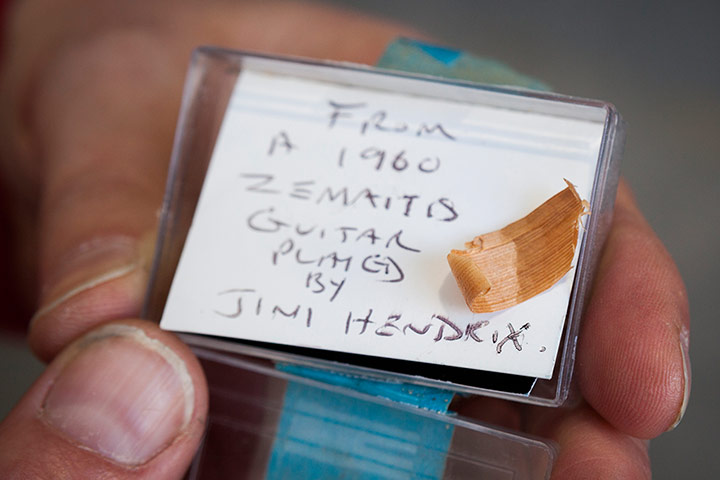 FROM
A 1960
ZEMAITIS
GUITAR
PLAYED
BY
JIMI HENDRIX.